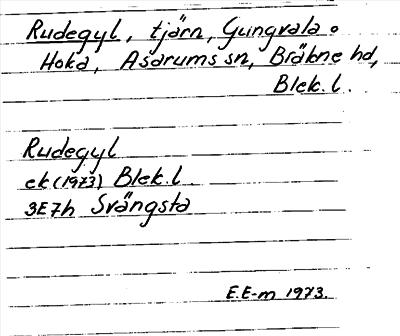 Rudegyl, tjärn, Gungvala o
Hoka, Asarums sn, Bräkne hd,
Blek. l.
Rudegyl
ek (1973) Blek. l.
3E7h Svängsta
E.E-m 1973.